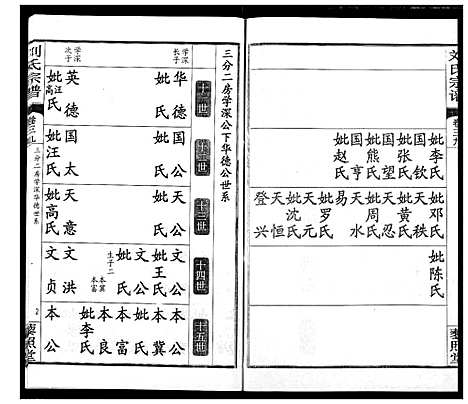 刘氏宗谱
卷三九
妣李氏
国钦
妣张氏
国望
妣熊氏
国亨
妣赵氏
妣邓氏
天秩
妣黄氏
天忍
妣周氏
天水
易氏
妣罗氏
天元
妣沈氏
天恒
登兴
妣陈氏
藜照堂
三分二房学深公下华德公世系
十一世
十二世
十三世
十四世
十五世
学深长子
华德公
妣氏
学深次子
英德
妣汪高氏
国公
妣氏
国太
妣汪氏
天公
妣氏
天意
妣高氏
文公
妣王氏
文公
妣氏
生子二
本冀
本富
文洪
文贞
本公
本冀
妣氏
本富
本良
妣李氏
本公
刘氏宗谱
卷三九
三分二房学深华德世系
2
藜照堂